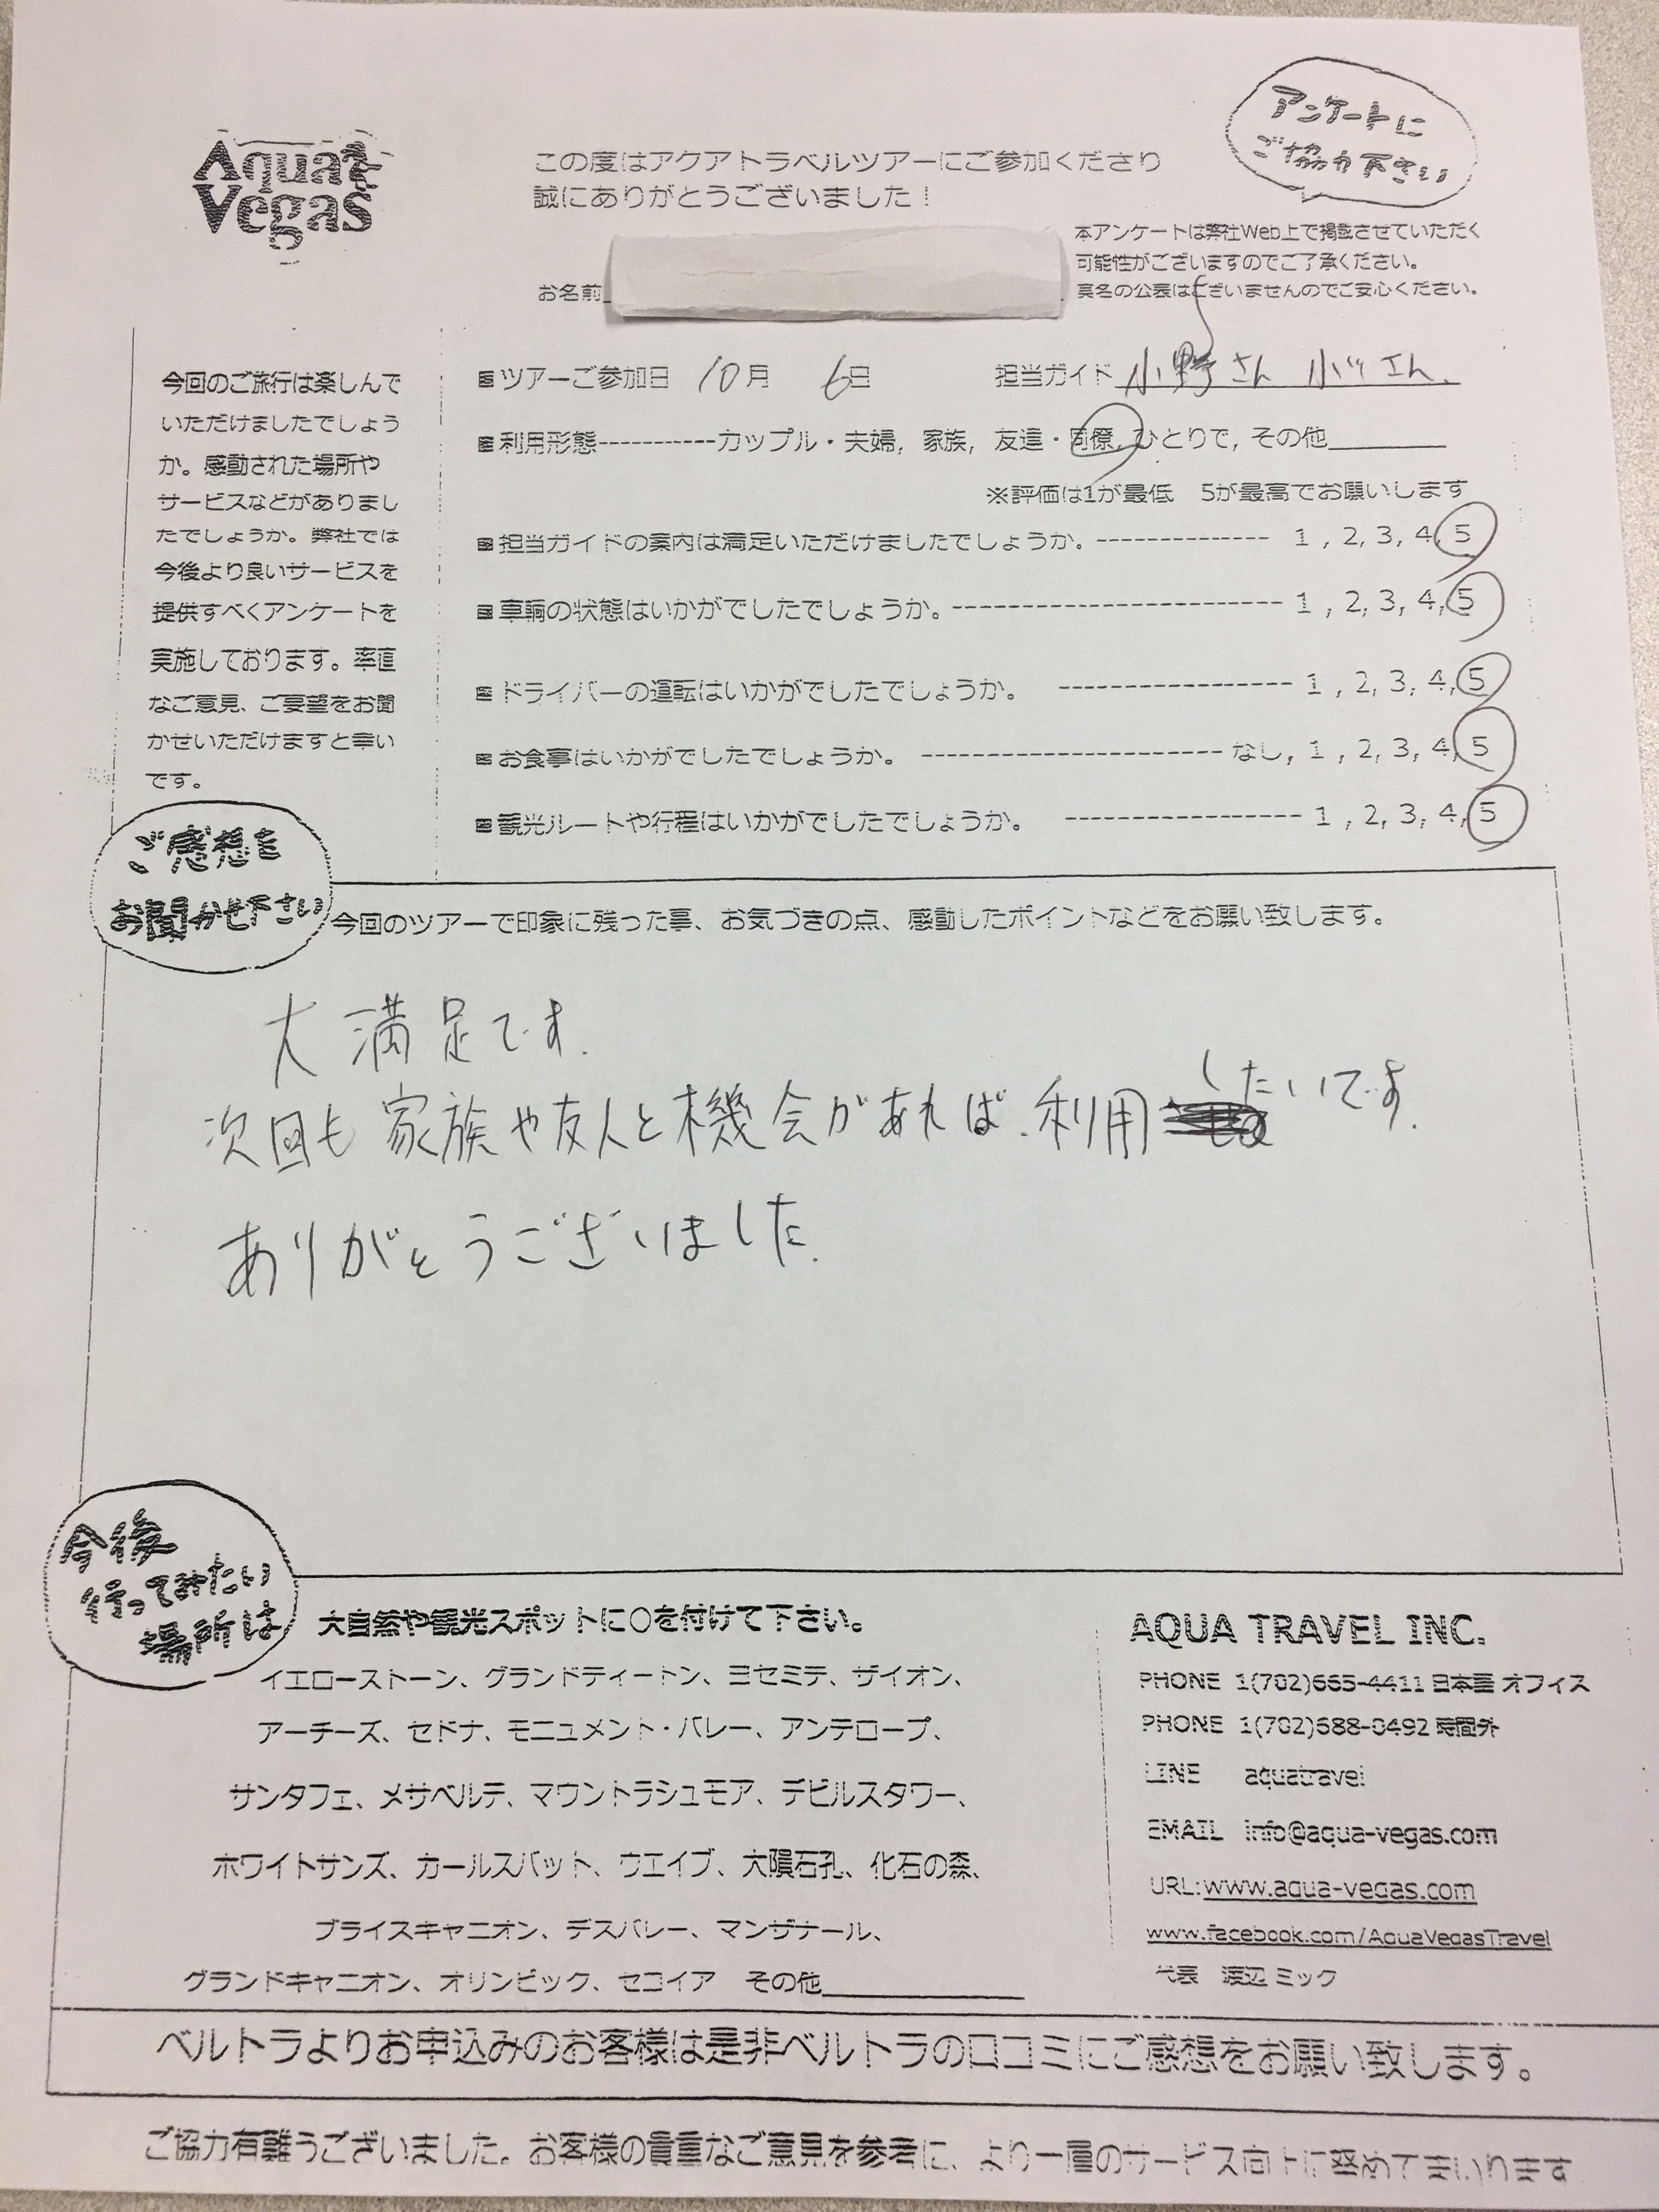 Aqua
Vegas
この度はアクアトラベルツアーにご参加くださり
誠にありがとうございました！
アンケートに
ご協力下さい
本アンケートは弊社Web上で掲載させていただく
可能性がございますのでご了承ください。
お名前
実名の公表はございませんのでご安心ください。
今回のご旅行は楽しんで
いただけましたでしょう
か。感動された場所や
サービスなどがありまし
たでしょうか。弊社では
今後より良いサービスを
提供すべくアンケートを
実施しております。率直
なご意見、ご要望をお聞
かせいただけますと幸い
です。
ツアーご参加日 10月 6日 担当ガイド 小野さん
利用形態-----------カップル・夫婦, 家族, 友達・同僚, ひとりで, その他
※評価は1が最低 5が最高でお願いします
担当ガイドの案内は満足いただけましたでしょうか。-------------- 1 , 2, 3, 4, 5
車輌の状態はいかがでしたでしょうか。--------------------------- 1 , 2, 3, 4, 5
ドライバーの運転はいかがでしたでしょうか。 ------------------- 1 , 2, 3, 4, 5
お食事はいかがでしたでしょうか。 ------------------------ なし, 1 , 2, 3, 4, 5
観光ルートや行程はいかがでしたでしょうか。 ------------------- 1 , 2, 3, 4, 5
ご感想を
お聞かせ下さい
今回のツアーで印象に残った事、お気づきの点、感動したポイントなどをお願い致します。
大満足です.
次回も家族や友人と機会があれば.利用したいです.
ありがとうございました.
今後
行ってみたい
場所は
大自然や観光スポットに○を付けて下さい。
イエローストーン、グランドティートン、ヨセミテ、ザイオン、
アーチーズ、セドナ、モニュメント・バレー、アンテロープ、
サンタフェ、メサベルデ、マウントラシュモア、デビルスタワー、
ホワイトサンズ、カールスバット、ウエイブ、大隕石孔、化石の森、
ブライスキャニオン、デスバレー、マンザナール、
グランドキャニオン、オリンピック、セコイア その他
AQUA TRAVEL INC.
PHONE 1(702)665-4411 日本語 オフィス
PHONE 1(702)688-0492 時間外
LINE aquatravel
EMAIL info@aqua-vegas.com
URL:www.aqua-vegas.com
www.facebook.com/AquaVegasTravel
代表 渡辺 ミック
ベルトラよりお申込みのお客様は是非ベルトラの口コミにご感想をお願い致します。
ご協力有難うございました。お客様の貴重なご意見を参考に、より一層のサービス向上に努めてまいります